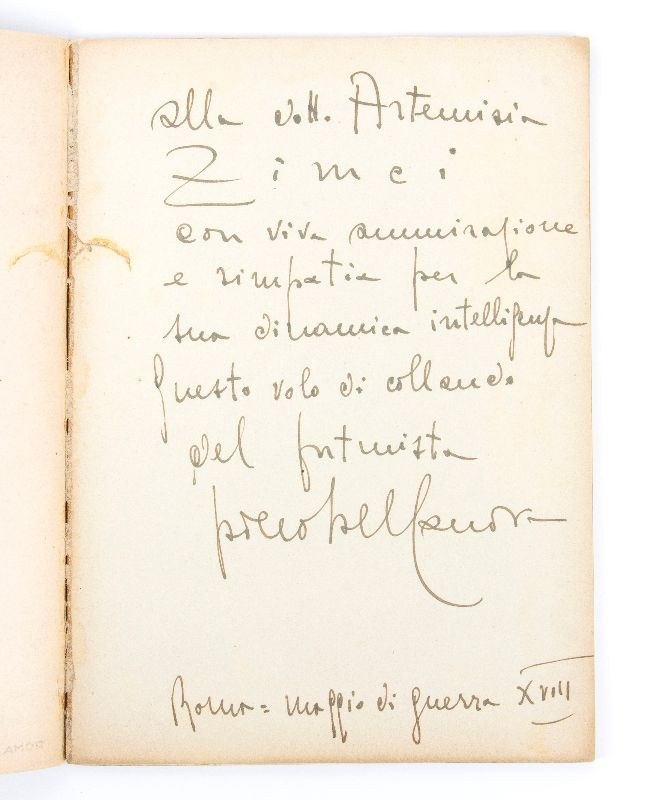 alla dott. Artemisia
Zimei
con viva ammirazione
e simpatia per la
sua dinamica intelligenza
Questo volo di collaudo
del futurista
piero bellanova
Roma = maggio di guerra XVIII
AMOR